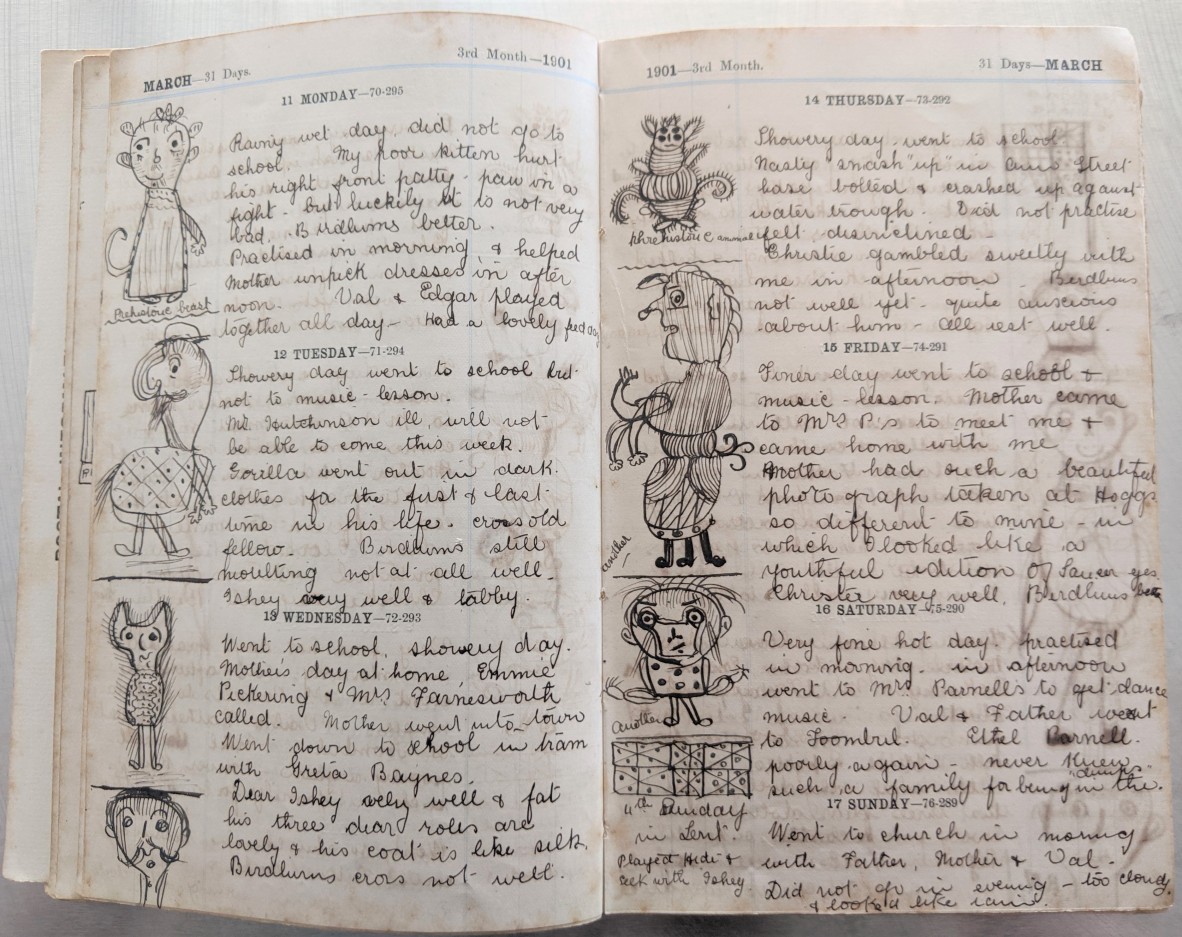 MARCH—31 Days.
3rd Month—1901
11 MONDAY—70-295
Rainy wet day did not go to
school. My poor kitten hurt
his right front patty-paw in a
fight - but luckily it is not very
bad. Birdlums better.
Practised in morning & helped
Mother unpick dresses in after
noon. Val & Edgar played
together all day— Had a lovely feed
Prehistoric beast
12 TUESDAY—71-294
Showery day went to school but
not to music-lesson.
Mr. Hutchinson ill, will not
be able to come this week.
Gorilla went out in dark
clothes for the first & last
time in his life. cross old
fellow. Birdlums still
moulting not at all well.
Ishey very well & tabby.
13 WEDNESDAY—72-293
Went to school, showery day.
Mother's day at home, Emmie
Pickering & Mrs Farnesworth
called. Mother went into town
Went down to school in tram
with Greta Baynes.
Dear Ishey very well & fat
his three dear roles are
lovely & his coat is like silk.
Birdlums cross not well.
1901—3rd Month.
31 Days—MARCH
14 THURSDAY—73-292
Showery day went to school
Nasty smash "up" in Street
bolted & crashed up against
water trough. Did not practise
felt disinclined -
phrehistoric animal
Christie gambled sweetly with
me in afternoon - Birdlums
not well yet - quite anxious
about him - all rest well.
15 FRIDAY—74-291
Finer day went to school &
music-lesson. Mother came
to Mrs P's to meet me &
came home with me
Mother had such a beautiful
photograph taken at Hoggs
so different to mine - in
which I looked like a
youthful edition of Saucer eyes.
Christie very well, Birdlums
another
16 SATURDAY—75-290
Very fine hot day. practised
in morning. in afternoon
went to Mrs Parnell's to get dance
music. Val & Father went
to Toombul. Ethel Parnell
poorly again - never knew
such a family for being in the "dumps".
another
17 SUNDAY—76-289
4th Sunday
in Lent.
Played Hide &
seek with Ishey
Went to church in morning
with Father, Mother & Val.
Did not go in evening - too cloudy
& look'd like rain.